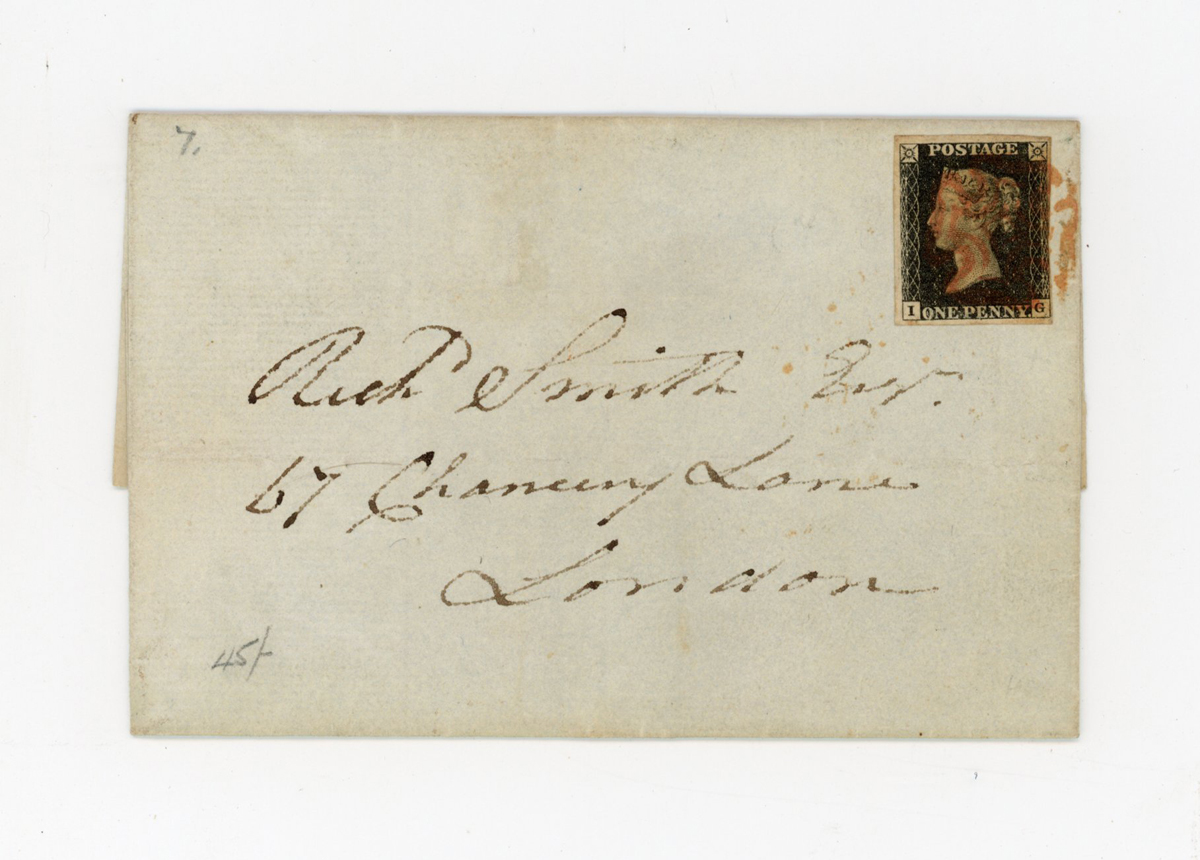 7.
POSTAGE
I ONE PENNY G
Richd Smith Esqr.
67 Chancery Lane
London
45/-